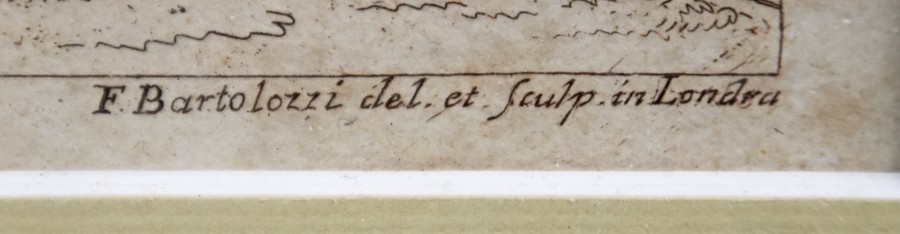 F. Bartolozzi del. et. Sculp. in Londra